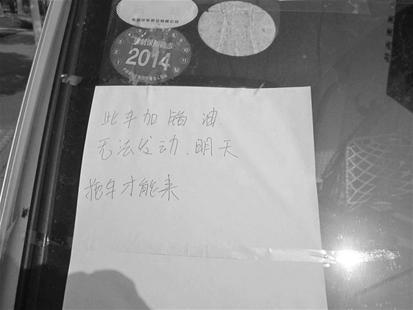 2014
此车加错油
无法发动、明天
拖车才能来